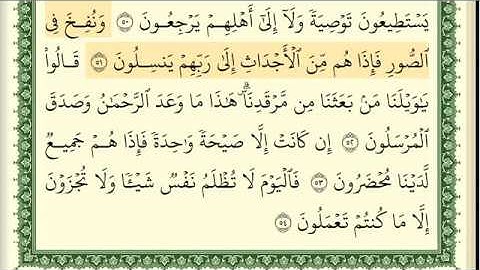 يَسْتَطِيعُونَ تَوْصِيَةً وَلَآ إِلَىٰٓ أَهْلِهِمْ يَرْجِعُونَ ٥٠ وَنُفِخَ فِى
ٱلصُّورِ فَإِذَا هُم مِّنَ ٱلْأَجْدَاثِ إِلَىٰ رَبِّهِمْ يَنسِلُونَ ٥١ قَالُوا۟
يَٰوَيْلَنَا مَنۢ بَعَثَنَا مِن مَّرْقَدِنَا ۜ ۗ هَٰذَا مَا وَعَدَ ٱلرَّحْمَٰنُ وَصَدَقَ
ٱلْمُرْسَلُونَ ٥٢ إِن كَانَتْ إِلَّا صَيْحَةً وَٰحِدَةً فَإِذَا هُمْ جَمِيعٌ
لَّدَيْنَا مُحْضَرُونَ ٥٣ فَٱلْيَوْمَ لَا تُظْلَمُ نَفْسٌ شَيْـًٔا وَلَا تُجْزَوْنَ
إِلَّا مَا كُنتُمْ تَعْمَلُونَ ٥٤